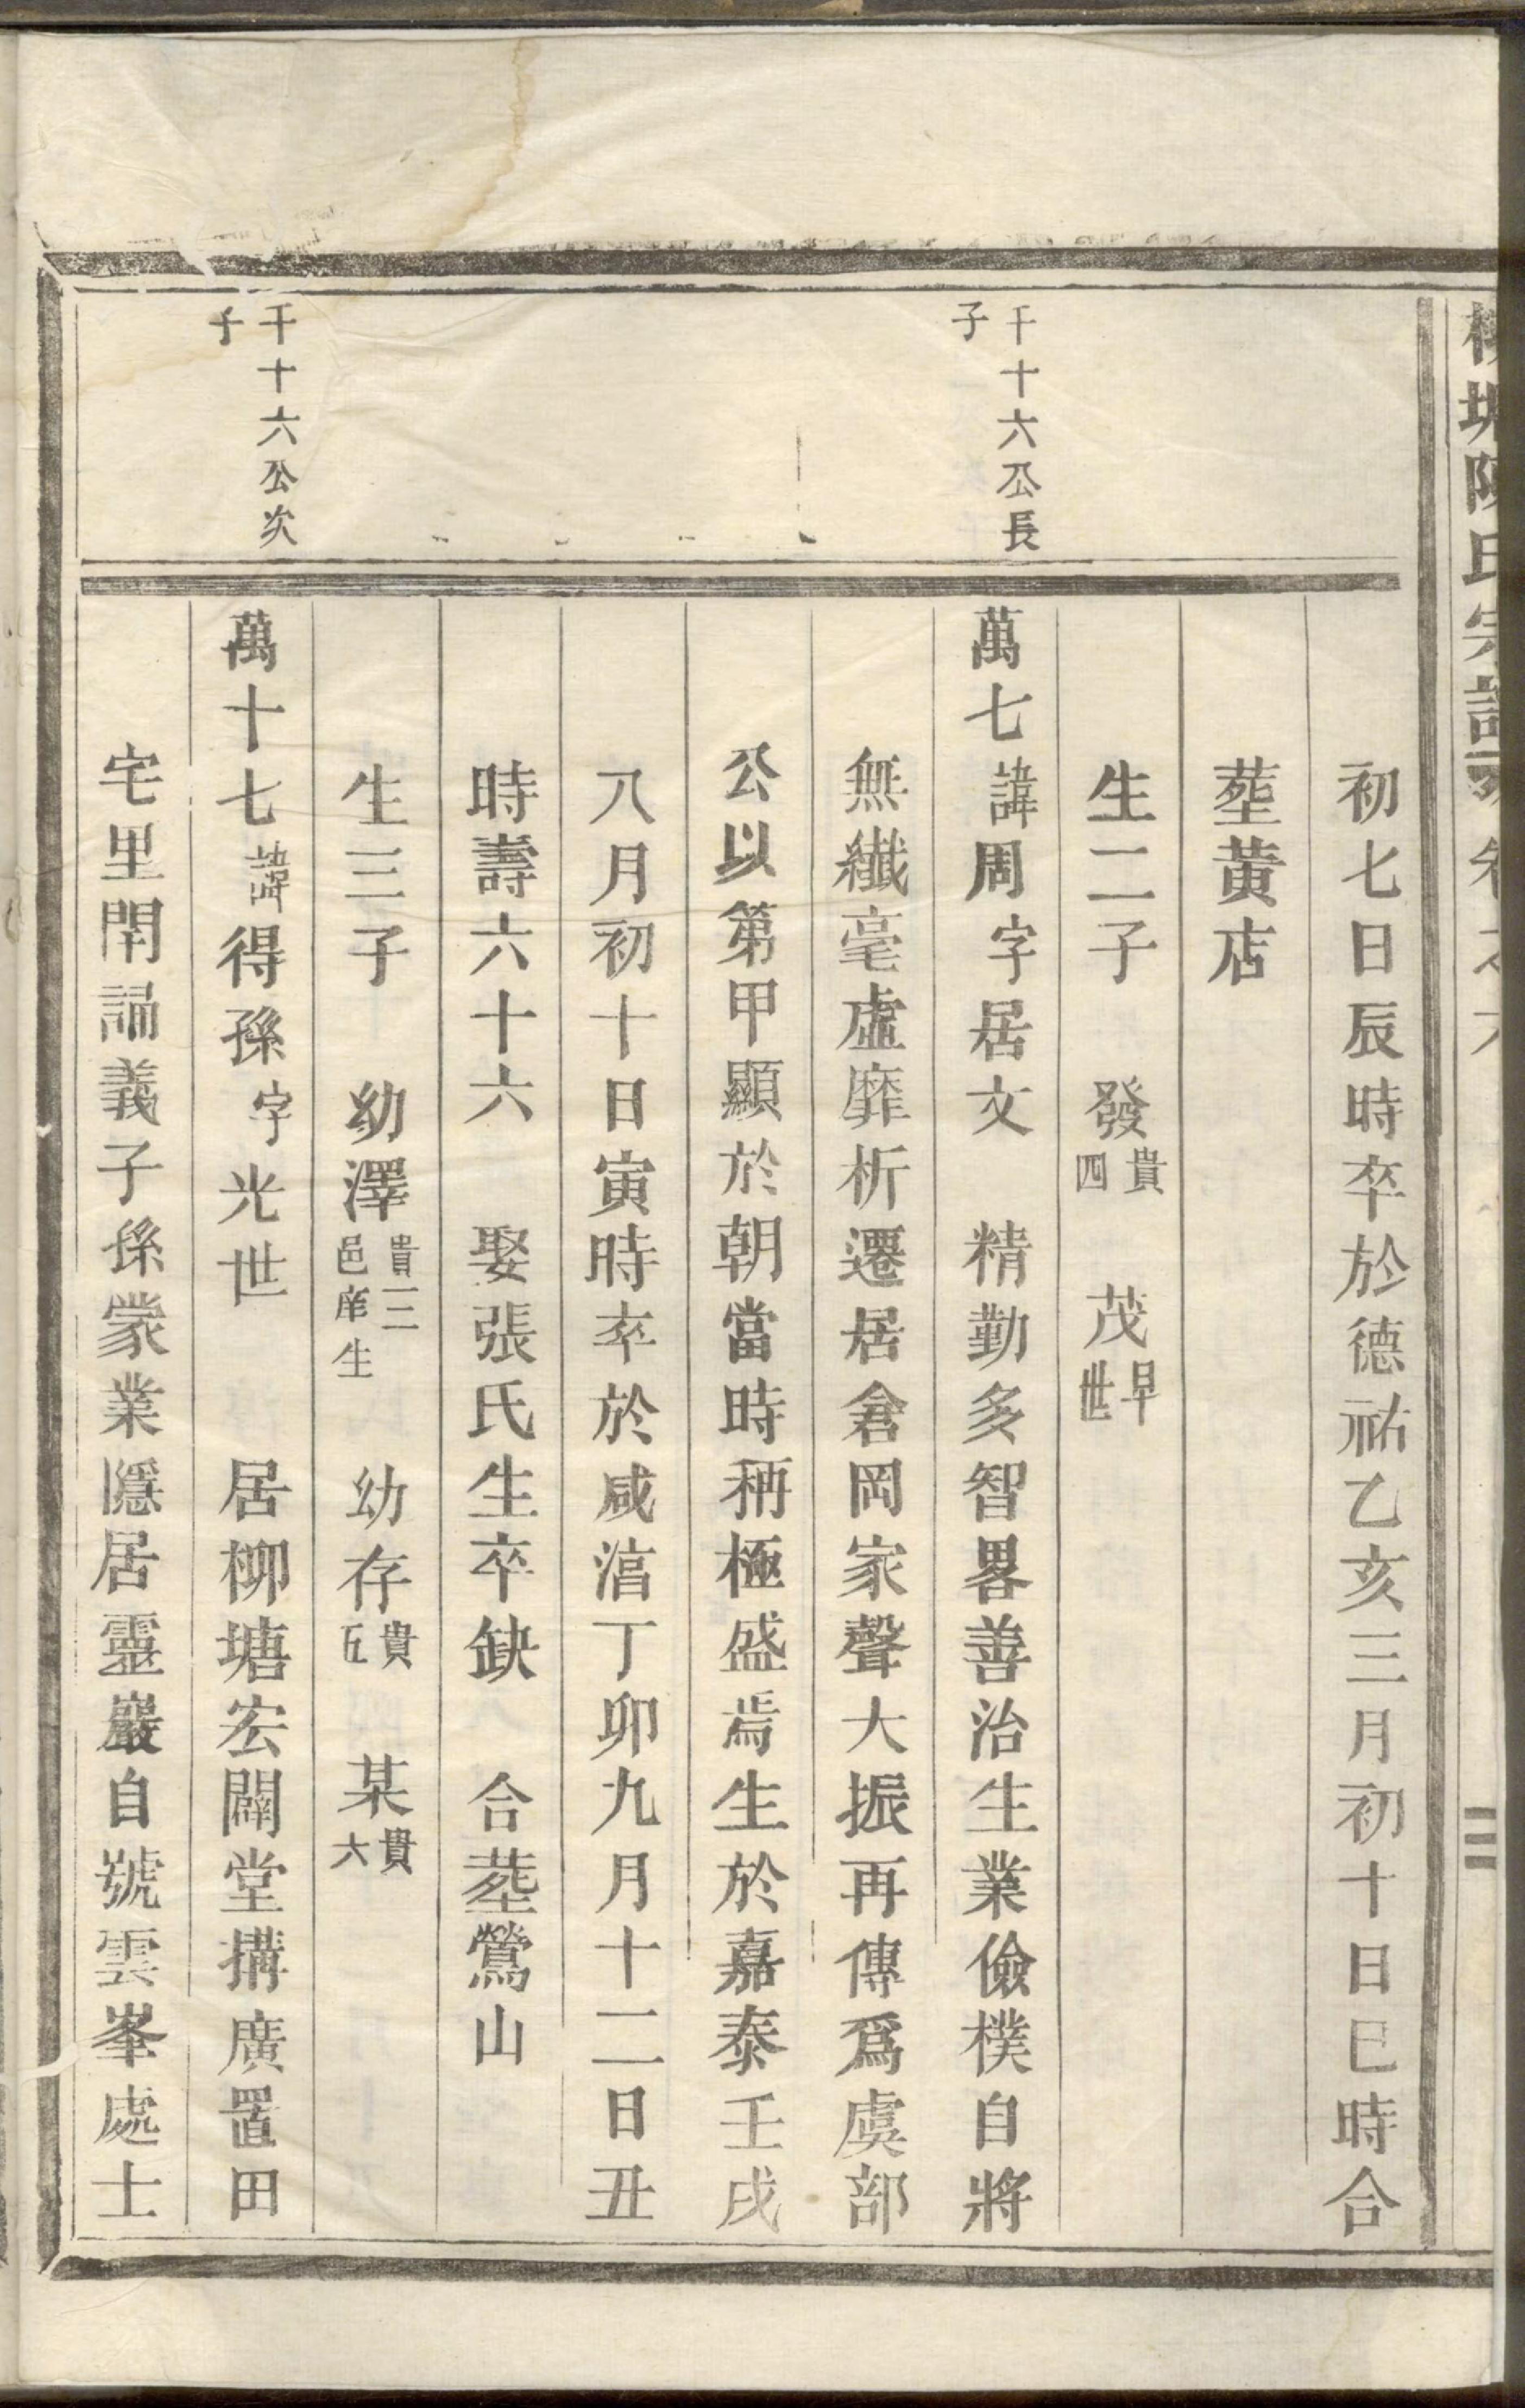 氏宗譜
初七日辰時卒於德祐乙亥三月初十日巳時合
塟黃店
生二子　發貴四　茂早世
千十六公長子
萬七諱周字居文　精勤多智畧善治生業儉樸自將
無纖毫虛靡析遷居倉岡家聲大振再傳爲虞部
公以第甲顯於朝當時稱極盛焉生於嘉泰壬戌
八月初十日寅時卒於咸湻丁卯九月十二日丑
時壽六十六　娶張氏生卒缺　合塟鶯山
生三子　幼澤貴二邑庠生　幼存貴五　某貴六
千十六公次子
萬十七諱得孫字光世　居柳塘宏闢堂搆廣置田
宅里閈誦義子孫蒙業隱居靈巖自號雲峯處士